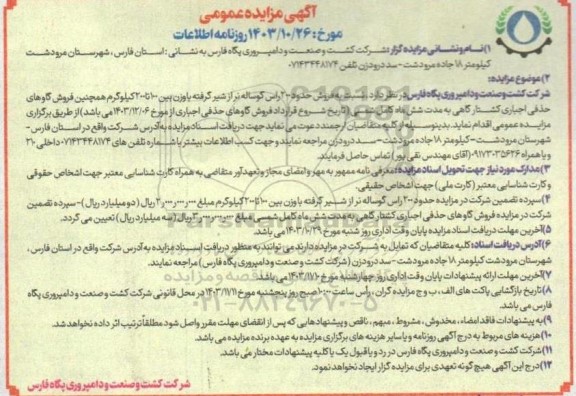 آگهی مزایده عمومی
مورخ: ۱۴۰۳/۱۰/۲۶ روزنامه اطلاعات
۱) نام و نشانی مزایده گزار: شرکت کشت و صنعت و دامپروری پگاه فارس به نشانی: استان فارس، شهرستان مرودشت
کیلومتر ۱۸ جاده مرودشت - سد درودزن تلفن ۰۷۱۴۳۴۴۸۱۷۴
۲) موضوع مزایده:
شرکت کشت و صنعت و دامپروری پگاه فارس در نظر دارد نسبت به فروش حدود ۲۰۰ راس گوساله نر از شیر گرفته با وزن بین ۱۰۰ تا ۲۰۰ کیلوگرم همچنین فروش گاوهای
حذفی اجباری کشتار گاهی به مدت شش ماه کامل شمسی (تاریخ شروع قرارداد فروش گاوهای حذفی اجباری از مورخ ۱۴۰۳/۱۲/۰۶ می باشد) از طریق برگزاری
مزایده عمومی اقدام نماید. بدینوسیله از کلیه متقاضیان ارجمند دعوت می نماید جهت دریافت اسناد مزایده به آدرس شرکت واقع در استان فارس-
شهرستان مرودشت - کیلومتر ۱۸ جاده مرودشت - سد درودزن مراجعه نمایند و جهت کسب اطلاعات بیشتر با شماره تلفن های ۰۷۱۴۳۴۴۸۱۷۴ داخلی ۳۱۰
و یا همراه ۰۹۱۷۳۰۳۵۶۲۶ (آقای مهندس نقی پور) تماس حاصل فرمایند.
۳) مدارک مورد نیاز جهت تحویل اسناد مزایده: معرفی نامه ممهور به مهر و امضای مجاز و تعهدآور متقاضی به همراه کارت شناسایی معتبر جهت اشخاص حقوقی
و کارت شناسایی معتبر (کارت ملی) جهت اشخاص حقیقی.
۴) سپرده تضمین شرکت در مزایده حدود ۲۰۰ راس گوساله نر از شیر گرفته با وزن بین ۱۰۰ تا ۲۰۰ کیلوگرم مبلغ ۲،۰۰۰،۰۰۰،۰۰۰ ریال (دو میلیارد ریال) - سپرده تضمین
شرکت در مزایده فروش گاو های حذفی اجباری کشتار گاهی به مدت شش ماه کامل شمسی مبلغ ۳،۰۰۰،۰۰۰،۰۰۰ ریال (سه میلیارد ریال) تعیین می گردد.
۵) آخرین مهلت دریافت اسناد مزایده پایان وقت اداری روز شنبه مورخ ۱۴۰۳/۱۰/۲۹ می باشد.
۶) آدرس دریافت اسناد: کلیه متقاضیان که تمایل به شرکت در مزایده دارند می توانند به منظور دریافت اسناد مزایده به آدرس شرکت واقع در استان فارس،
شهرستان مرودشت کیلومتر ۱۸ جاده مرودشت - سد درودزن (شرکت کشت و صنعت و دامپروری پگاه فارس) مراجعه نمایند.
۷) آخرین مهلت ارائه پیشنهادات پایان وقت اداری روز چهارشنبه مورخ ۱۴۰۳/۱۱/۱۰ می باشد.
۸) تاریخ بازگشایی پاکت های الف، ب و ج مزایده گران، رأس ساعت ۱۰:۰۰ صبح روز پنجشنبه مورخ ۱۴۰۳/۱۱/۱۱ در محل قانونی شرکت کشت و صنعت و دامپروری پگاه
فارس می باشد.
۹) به پیشنهادات فاقد امضاء، مخدوش، مشروط، مبهم، ناقص و پیشنهادهایی که پس از انقضای مهلت مقرر واصل شود مطلقاً ترتیب اثر داده نخواهد شد.
۱۰) هزینه های مربوط به درج آگهی روزنامه و یا سایر هزینه های برگزاری مزایده به عهده برنده مزایده می باشد.
۱۱) شرکت کشت و صنعت و دامپروری پگاه فارس در رد و یا قبول یک یا کلیه پیشنهادات مختار می باشد.
۱۲) درج این آگهی هیچ گونه تعهدی برای مزایده گزار ایجاد نخواهد نمود.
شرکت کشت و صنعت و دامپروری پگاه فارس
۰۲۱-۸۸۳۴۹۶۷۰-۵